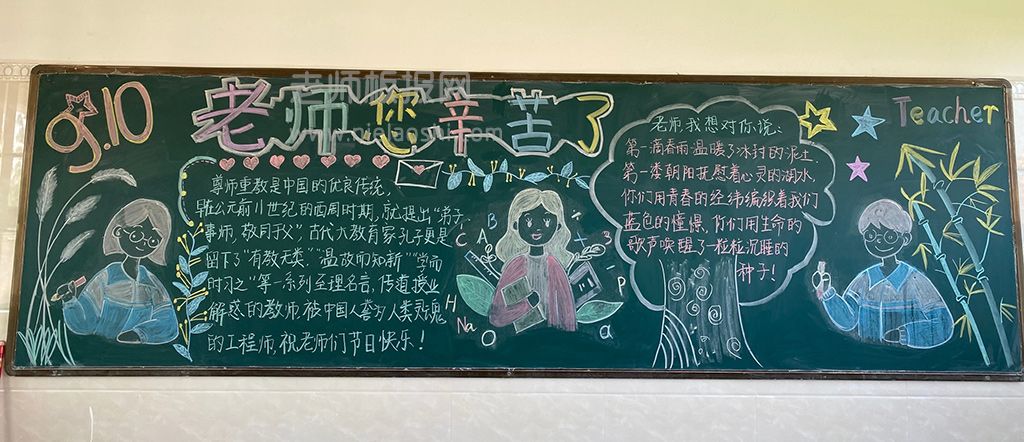 9.10
老师您辛苦了
Teacher
老师板报网
www.qielaoshi.com
尊师重教是中国的优良传统,
早在公元前11世纪的西周时期,就提出“弟子
事师,敬同于父”古代大教育家孔子更是
留下了“有教无类”“温故而知新”“学而
时习之”等一系列至理名言,传道授业
解惑的教师被中国人誉为人类灵魂
的工程师,祝老师们节日快乐!
B
C A
H
Na
O
P
a
老师,我想对你说:
第一滴春雨温暖了冰封的泥土.
第一缕朝阳抚慰着心灵的湖水,
你们用青春的经纬编织着我们
蓝色的憧憬,你们用生命的
歌声唤醒了一粒粒沉睡的
种子!